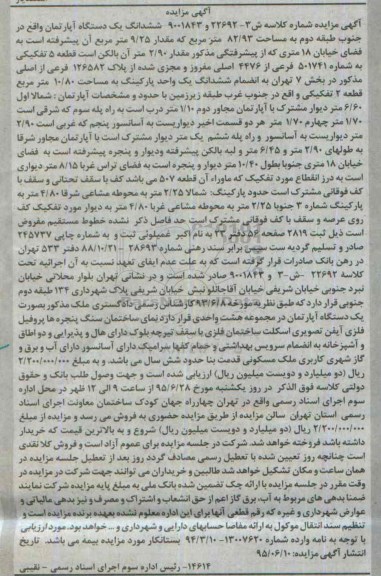 آگهی مزایده
آگهی مزایده شماره کلاسه ش۳- ۲۲۶۹۲ و ۹۰۰۱۸۴۳ ششدانگ یک دستگاه آپارتمان واقع در
جنوب طبقه دوم به مساحت ۸۲/۹۳ متر مربع که مقدار ۹/۲۵ متر مربع آن پیشرفته است به
فضای خیابان ۱۸ متری که از پیشرفتگی مذکور مقدار ۲/۹۰ متر آن بالکن است قطعه ۵ تفکیکی
به شماره ۵۰۱۷۴۱ فرعی از ۴۴۷۶ اصلی مفروز و مجزی شده از پلاک ۱۲۶۵۸۳ فرعی از اصلی
مذکور در بخش ۷ تهران به انضمام ششدانگ یک واحد پارکینگ به مساحت ۱۰/۸۰ متر مربع
قطعه ۲ تفکیکی و اقع در جنوب غرب طبقه زیرزمین با حدود و مشخصات آپارتمان : شمالا اول
۶/۶۰ متر دیوار مشترک با آپارتمان مجاور دوم ۱/۱۰ متر درب است به راه پله سوم که شرقی است
۱/۷۰ متر چهارم ۱/۷۰ متر هر دو قسمت اخیر دیواریست به آسانسور پنجم که غربی است ۲/۹۰
متر دیواریست به آسانسور و راه پله ششم یک متر دیوار مشترک است با آپارتمان مجاور شرقا
به طولهای ۲/۹۰ متر و ۶/۲۵ متر و لبه بالکن پیشرفته ودیوار و پنجره پیشرفته است به فضای
خیابان ۱۸ متری جنوبا بطول ۱۰/۴۰ متر دیوار و پنجره است به فضای تراس غربا ۸/۱۵ متر دیواری
است به درز انقطاع مورد تفکیک که ماوراء آن قطعه ۵۰۷ می باشد کف با سقف تحتانی و سقف با
کف فوقانی مشترک است حدود پارکینگ: شمالا ۲/۲۵ متر به محوطه مشاعی شرقا ۴/۸۰ متر به
پارکینگ شماره ۳ جنوبا ۲/۲۵ متر به محوطه مشاعی غربا ۴/۸۰ متر به دیوار مورد تفکیک کف
روی عرصه و سقف با کف فوقانی مشترک است حد فاصل ذکر نشده خطوط مستقیم مفروض
است ذیل ثبت ۲۸۱۹ صفحه ۵۶ دفتر ۲۳ به نام اکبر غمیلوئی ثبت و به شماره چاپی ۲۴۵۷۳۷
صادر و تسلیم گردیده ست سپس برابر سند رهنی شماره ۲۸۶۹۳ - ۸۸/۱۰/۲۱ دفتر ۵۳۳ تهران
در رهن بانک صادرات قرار گرفته است که به علت عدم ایفای تعهد نسبت به آن اجرائیه تحت
کلاسه ۲۲۶۹۲ -ش-۳ و ۹۰۰۱۸۴۳ صادر شده است و در نشانی تهران بلوار محلاتی خیابان
نبرد جنوبی خیابان شریفی خیابان آقاجانلو نبش خیابان شریفی پلاک شهرداری ۱۳۴ طبقه دوم
جنوبی قرار دارد که طبق نظریه مورخه ۹۳/۶/۸ کارشناس رسمی دادگستری ملک مذکور بصورت
یک دستگاه آپارتمان در مجموعه هشت واحدی قرار دارد نمای ساختمان سنگ پنجره ها پروفیل
فلزی آیفن تصویری اسکلت ساختمان فلزی با سقف تیرچه بلوک دارای هال و پذیرایی و دو اطاق
و آشپزخانه به انضمام سرویس بهداشتی و حمام کفها سرامیک دارای آسانسور دارای آب و برق و
گاز شهری کاربری ملک مسکونی قدمت بنا حدود شش سال می باشد. و به مبلغ ۲/۲۰۰/۰۰۰/۰۰۰
ریال (دو میلیارد و دویست میلیون ریال) ارزیابی شده است و جهت وصول طلب بانک و حقوق
دولتی کلاسه فوق الذکر در روز یکشنبه مورخ ۹۵/۶/۲۸ از ساعت ۹ الی ۱۲ ظهر در محل اداره
سوم اجرای اسناد رسمی واقع در تهران چهارراه جهان کودک ساختمان معاونت اجرای اسناد
رسمی استان تهران سالن مزایده از طریق مزایده حضوری به فروش می رسد و مزایده از مبلغ
۲/۲۰۰/۰۰۰/۰۰۰ ریال (دو میلیارد و دویست میلیون ریال) شروع و به بالاترین قیمت که خریدار
داشته باشد فروخته خواهد شد. شرکت در جلسه مزایده برای عموم آزاد است و فروش کلا نقدی
است چنانچه روز تعیین شده با تعطیل رسمی مصادف گردد روز بعد از تعطیل جلسه مزایده در
همان ساعت و مکان تشکیل خواهد شد طالبین و خریداران می توانند جهت شرکت در مزایده در
وقت مقرر در جلسه مزایده با ارائه چک تضمین شده بانک ملی به مبلغ پایه مزایده شرکت نمایند
ضمنا بدهی های مربوط به آب، برق گاز اعم از حق انشعاب و اشتراک و مصرف و نیز بدهی مالیاتی و
عوارض شهرداری و غیره که رقم قطعی آنها برای این اداره معلوم نشده بعهده برنده مزایده است و
تنظیم سند انتقال موکول به ارائه مفاصا حسابهای دارایی و شهرداری و ... خواهد بود. مورد ارزیابی
با توجه به نامه وارده شماره ۱۳۰۰۷۶۲۰- ۹۴/۳/۱۰ بستانکار مورد مزایده بیمه می باشد. تاریخ
انتشار آگهی مزایده: ۹۵/۰۶/۱۰
۱۴۶۱۴- رئیس اداره سوم اجرای اسناد رسمی - نقیبی